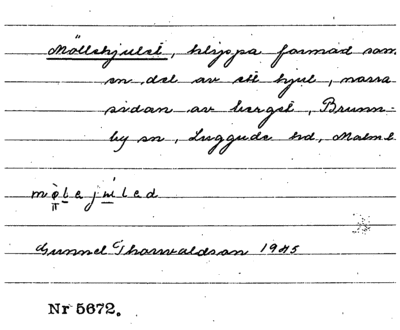 Möllehjulet, klippa formad som
en del av ett hjul, norra
sidan av berget, Brunn-
by sn, Luggude hd, Malm l
Gunnel Thorwaldson 1945
Nr 5672.